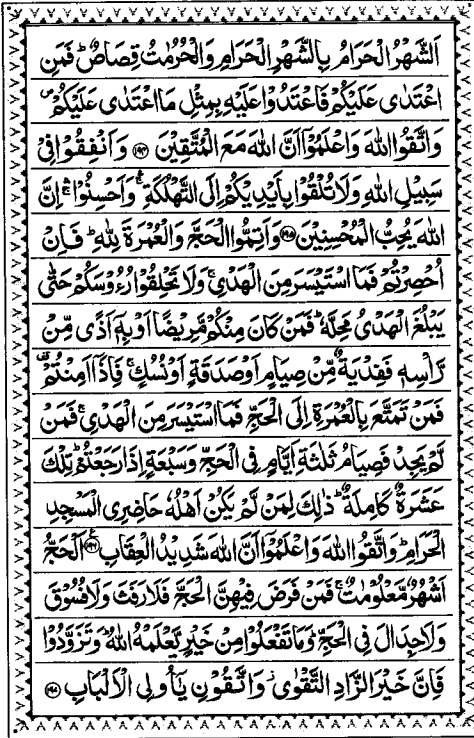 اَلشَّهْرُ الْحَرَامُ بِالشَّهْرِ الْحَرَامِ وَالْحُرُمٰتُ قِصَاصٌ ؕ فَمَنِ
اعْتَدٰى عَلَيْكُمْ فَاعْتَدُوْا عَلَيْهِ بِمِثْلِ مَا اعْتَدٰى عَلَيْكُمْ ۪
وَاتَّقُوا اللّٰهَ وَاعْلَمُوْۤا اَنَّ اللّٰهَ مَعَ الْمُتَّقِيْنَ ﴿۱۹۴﴾ وَاَنْفِقُوْا فِيْ
سَبِيْلِ اللّٰهِ وَلَا تُلْقُوْا بِاَيْدِيْكُمْ اِلَى التَّهْلُكَةِ ۛۚ وَاَحْسِنُوْا ۛۚ اِنَّ
اللّٰهَ يُحِبُّ الْمُحْسِنِيْنَ ﴿۱۹۵﴾ وَاَتِمُّوا الْحَجَّ وَالْعُمْرَةَ لِلّٰهِ ؕ فَاِنْ
اُحْصِرْتُمْ فَمَا اسْتَيْسَرَ مِنَ الْهَدْيِ ۚ وَلَا تَحْلِقُوْا رُءُوْسَكُمْ حَتّٰى
يَبْلُغَ الْهَدْيُ مَحِلَّهٗ ؕ فَمَنْ كَانَ مِنْكُمْ مَّرِيْضًا اَوْ بِهٖۤ اَذًى مِّنْ
رَّاْسِهٖ فَفِدْيَةٌ مِّنْ صِيَامٍ اَوْ صَدَقَةٍ اَوْ نُسُكٍ ۚ فَاِذَاۤ اَمِنْتُمْ ٝ
فَمَنْ تَمَتَّعَ بِالْعُمْرَةِ اِلَى الْحَجِّ فَمَا اسْتَيْسَرَ مِنَ الْهَدْيِ ۚ فَمَنْ
لَّمْ يَجِدْ فَصِيَامُ ثَلٰثَةِ اَيَّامٍ فِي الْحَجِّ وَسَبْعَةٍ اِذَا رَجَعْتُمْ ؕ تِلْكَ
عَشَرَةٌ كَامِلَةٌ ؕ ذٰلِكَ لِمَنْ لَّمْ يَكُنْ اَهْلُهٗ حَاضِرِى الْمَسْجِدِ
الْحَرَامِ ؕ وَاتَّقُوا اللّٰهَ وَاعْلَمُوْۤا اَنَّ اللّٰهَ شَدِيْدُ الْعِقَابِ ﴿۱۹۶﴾ اَلْحَجُّ
اَشْهُرٌ مَّعْلُوْمٰتٌ ۚ فَمَنْ فَرَضَ فِيْهِنَّ الْحَجَّ فَلَا رَفَثَ وَلَا فُسُوْقَ
وَلَا جِدَالَ فِي الْحَجِّ ؕ وَمَا تَفْعَلُوْا مِنْ خَيْرٍ يَّعْلَمْهُ اللّٰهُ ؔؕ وَتَزَوَّدُوْا
فَاِنَّ خَيْرَ الزَّادِ التَّقْوٰى ؗ وَاتَّقُوْنِ يٰۤاُولِى الْاَلْبَابِ ﴿۱۹۷﴾